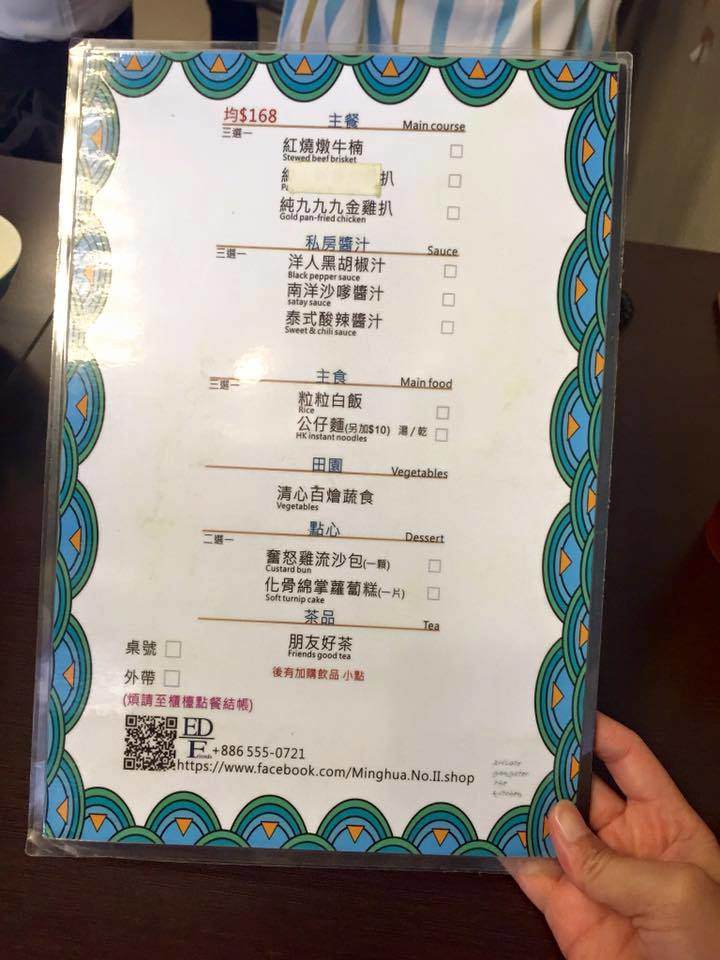 均$168 主餐 Main course
三選一
紅燒燉牛楠
Stewed beef brisket
扒
純九九九金雞扒
Gold pan-fried chicken
私房醬汁 Sauce
三選一
洋人黑胡椒汁
Black pepper sauce
南洋沙嗲醬汁
satay sauce
泰式酸辣醬汁
Sweet & chili sauce
主食 Main food
三選一
粒粒白飯
Rice
公仔麵(另加$10) 湯/乾
HK instant noodles
田園 Vegetables
清心百燴蔬食
Vegetables
點心 Dessert
二選一
奮怒雞流沙包(一顆)
Custard bun
化骨綿掌蘿蔔糕(一片)
Soft turnip cake
茶品 Tea
朋友好茶
Friends good tea
桌號
後有加購飲品 小點
外帶
(煩請至櫃檯點餐結帳)
ED
Friends
+886 555-0721
https://www.facebook.com/Minghua.No.II.shop